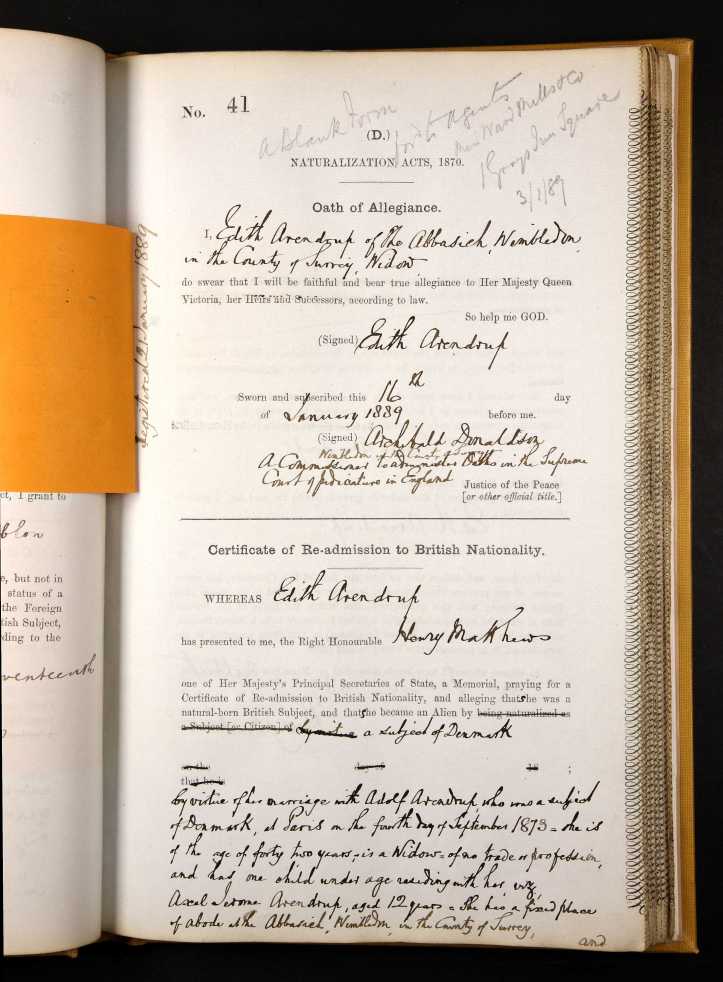 No. 41
A Blank Form
for to Agents
Ward Mills & Co
1 Grays Inn Square
3/1/89
(D.)
NATURALIZATION ACTS, 1870.
Oath of Allegiance.
I, Edith Arendrup of the Abbasieh, Wimbledon,
in the County of Surrey, Widow
do swear that I will be faithful and bear true allegiance to Her Majesty Queen
Victoria, her Heirs and Successors, according to law.
So help me GOD.
(Signed) Edith Arendrup
Sworn and subscribed this 16th day
of January 1889 before me.
(Signed) Archibald Donaldson
Wimbledon in the County of Surrey
A Commissioner to administer Oaths in the Supreme
Court of Judicature in England
Justice of the Peace
[or other official title.]
Certificate of Re-admission to British Nationality.
WHEREAS Edith Arendrup
has presented to me, the Right Honourable Henry Matthews
one of Her Majesty's Principal Secretaries of State, a Memorial, praying for a
Certificate of Re-admission to British Nationality, and alleging that she was a
natural-born British Subject, and that she became an Alien by being naturalized as
a Subject [or Citizen] of by virtue a subject of Denmark
on the day of 18 ;
that he is
by virtue of her marriage with Adolf Arendrup who was a subject
of Denmark, at Paris on the fourth day of September 1873 = she is
of the age of forty two years, is a Widow = of no trade or profession,
and has one child under age residing with her, viz,
Axel Jerome Arendrup, aged 12 years = She has a fixed place
of abode at the Abbasieh, Wimbledon, in the County of Surrey,
and
registered 21 January 1889
ct, I grant to
blon
e, but not in
status of a
the Foreign
tish Subject,
ding to the
venteenth